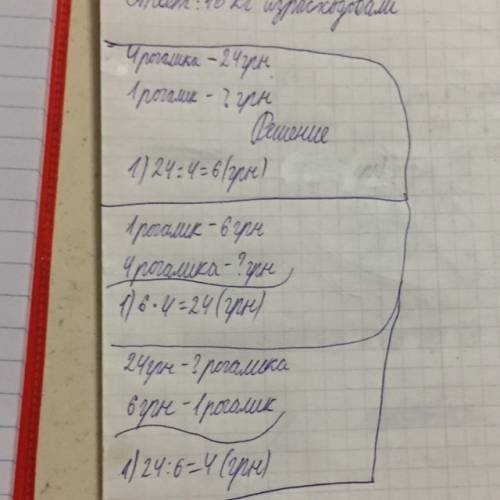 Ответ: 10 кг израсходовали
4 рогалика - 24 грн
1 рогалик - ? грн
Решение
1) 24:4=6 (грн)
1 рогалик - 6 грн
4 рогалика - ? грн
1) 6·4=24 (грн)
24 грн - ? рогалика
6 грн - 1 рогалик
1) 24:6=4 (грн)